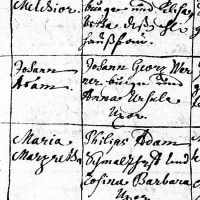 Melchior.
burger und Elisa
betha deßen
haußfrau.
Johann
Adam.
Johann Georg Wer
ner burger und
Anna Ursula
Uxor.
Maria
Margretha
Philips Adam
und
Sofina Barbara
Uxor.